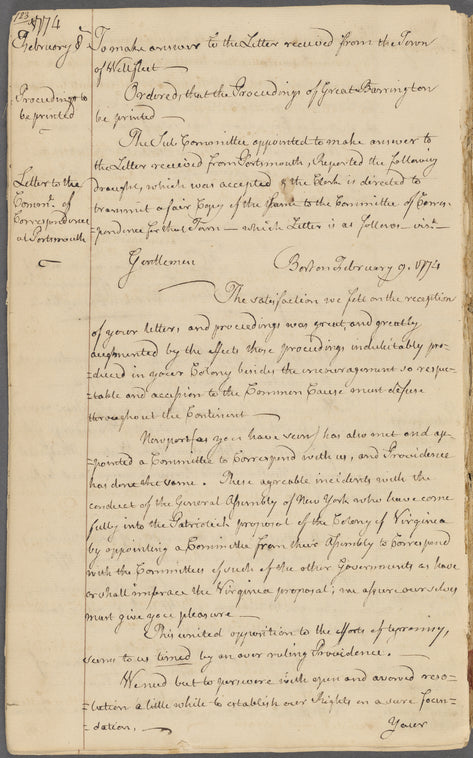 123
1774
February 8
To make answer to the Letter received from the Town
of Wellfleet —
Proceedings to
be printed
Ordered, that the Proceedings of Great Barrington
be printed —
The Sub Committee appointed to make answer to
the Letter received from Portsmouth, Reported the following
draught, which was accepted & the Clerk is directed to
transmit a fair Copy of the same to the Committee of Corres-
=pondence for that Town — which Letter is as follows viz.
Letter to the
Comm. of
Correspondence
at Portsmouth
Gentlemen
Boston February 9. 1774
The satisfaction we felt on the reception
of your letter, and proceedings was great, and greatly
augmented by the effects those proceedings indubitably pro-
=duced in your Colony besides the encouragement so respec-
=table and accession to the Common Cause must defuse
throughout the Continent —
Newport (as you have seen) has also met and ap-
=pointed a Committee to Correspond with us, and Providence
has done the same. These agreable incidents with the
conduct of the General Assembly of New York who have come
fully into the Patriotick proposal of the Colony of Virginia
by appointing a Committee from their Assembly to Correspond
with the Committees of such of the other Governments as have
or shall imbrace the Virginia proposal; we assure ourselves
must give you pleasure —
This united opposition to the efforts of tyranny,
seems to us timed by an over ruling Providence. —
We need but to persevere with open and avowed reso-
=lution a little while to establish our Rights on a sure foun-
=dation. —
Your